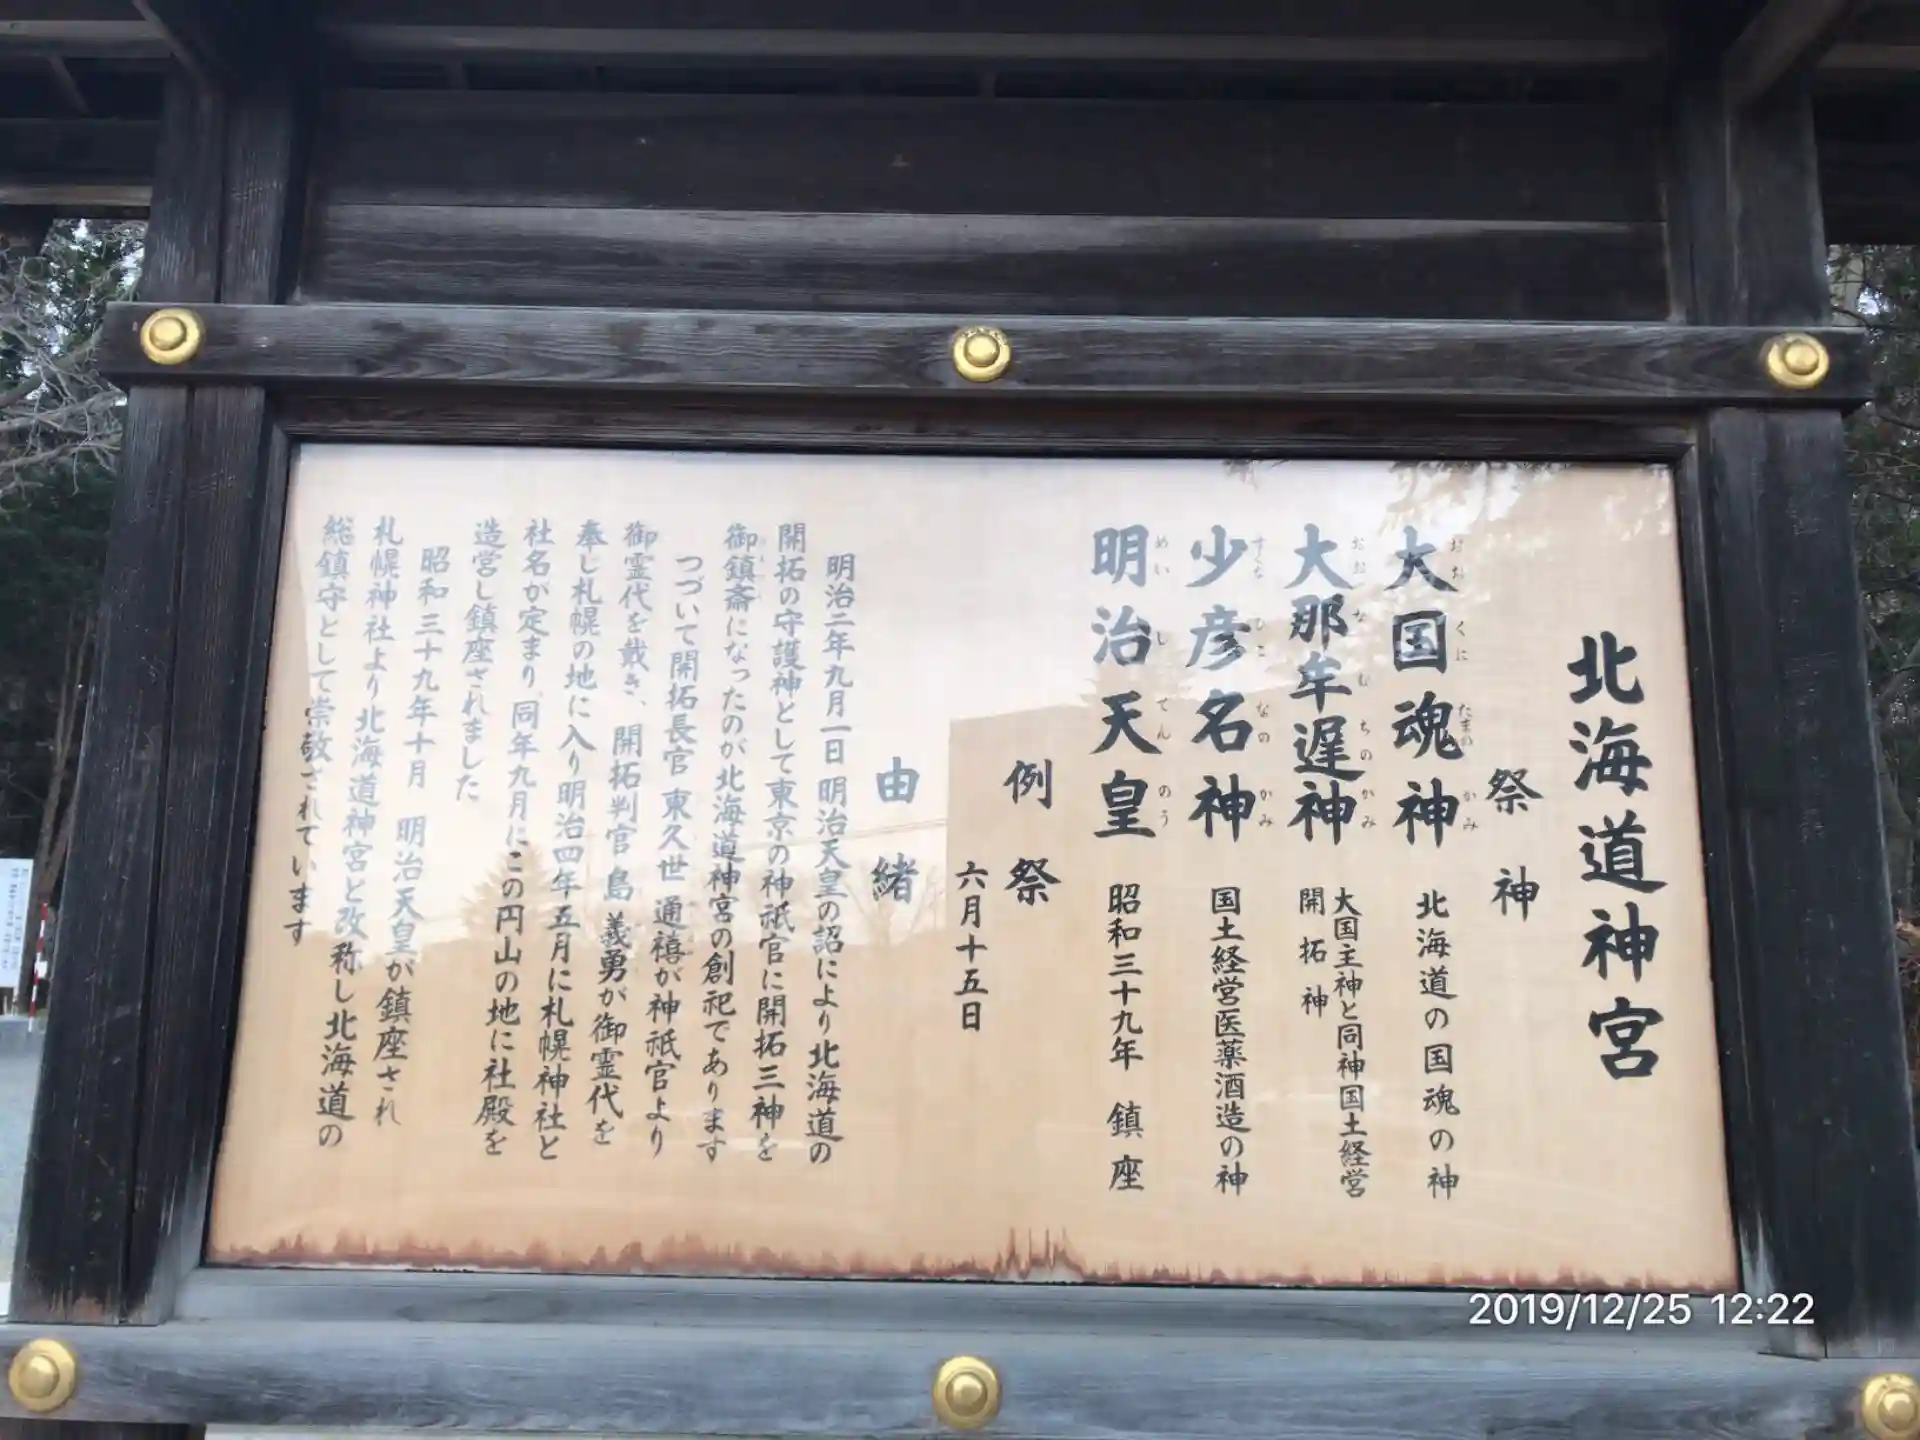 北海道神宮
祭神
大国魂神 北海道の国魂の神
おお くに たまの かみ
大那牟遅神 大国主神と同神国土経営
開拓神
おお な む ちの かみ
少彦名神 国土経営医薬酒造の神
すくな ひこ なの かみ
明治天皇 昭和三十九年 鎮座
めい じ てん のう
例祭
六月十五日
由緒
明治二年九月一日 明治天皇の詔により北海道の
開拓の守護神として東京の神祇官に開拓三神を
御鎮斎になったのが北海道神宮の創祀であります
つづいて開拓長官 東久世 通禧が神祇官より
御霊代を戴き、開拓判官 島 義勇が御霊代を
奉じ札幌の地に入り明治四年五月に札幌神社と
社名が定まり、同年九月にこの円山の地に社殿を
造営し鎮座されました
昭和三十九年十月 明治天皇が鎮座され
札幌神社より北海道神宮と改称し北海道の
総鎮守として崇敬されています
2019/12/25 12:22